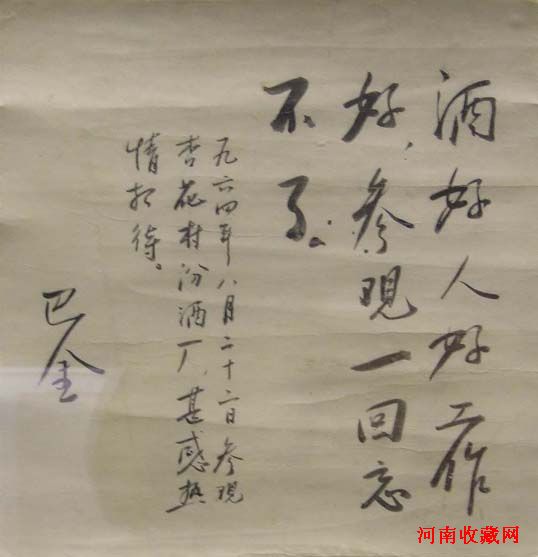 酒好人好工作
好,参观一回忘
不了。
一九六四年八月二十二日参观
杏花村汾酒厂,甚感热
情招待。
巴金
河南收藏网